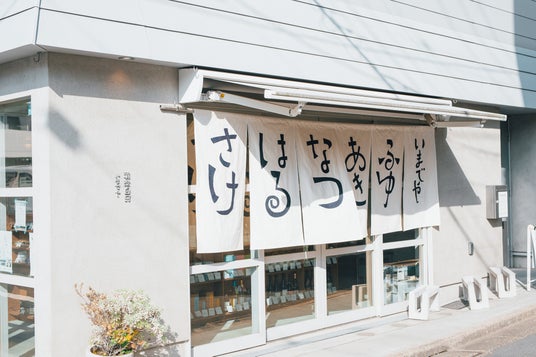 さけ
はる
なつ
あき
ふゆ
いまでや